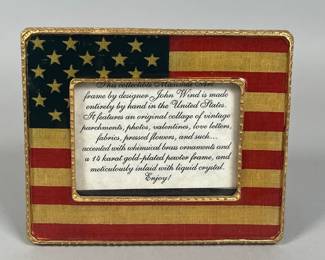 This collectible
frame by designer John Wind is made
entirely by hand in the United States.
It features an original collage of vintage
parchments, photos, valentines, love letters,
fabrics, pressed flowers, and such...
accented with whimsical brass ornaments and
a 14 karat gold-plated pewter frame, and
meticulously inlaid with liquid crystal.
Enjoy!